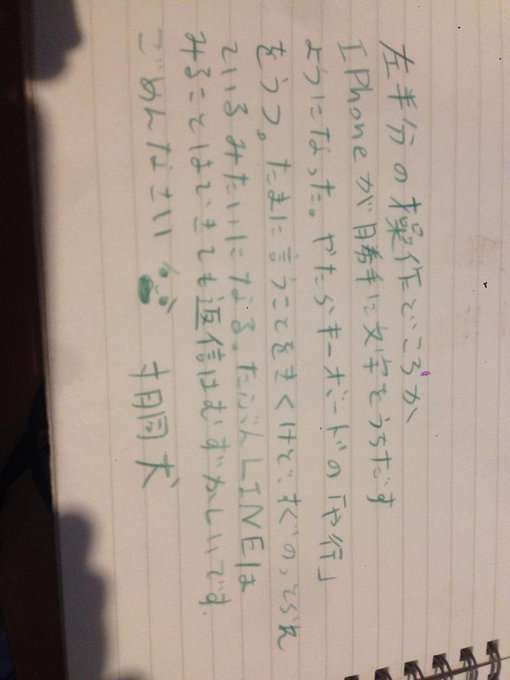 左半分の操作どころか
IPhoneが勝手に文字をうちだす
ようになった。やたらキーボードの「や行」
をうつ。たまに言うことをきくけど、すぐのっとられ
ているみたいになる。たぶんLINEは
みることはできても返信はむずかしいです。
ごめんなさい